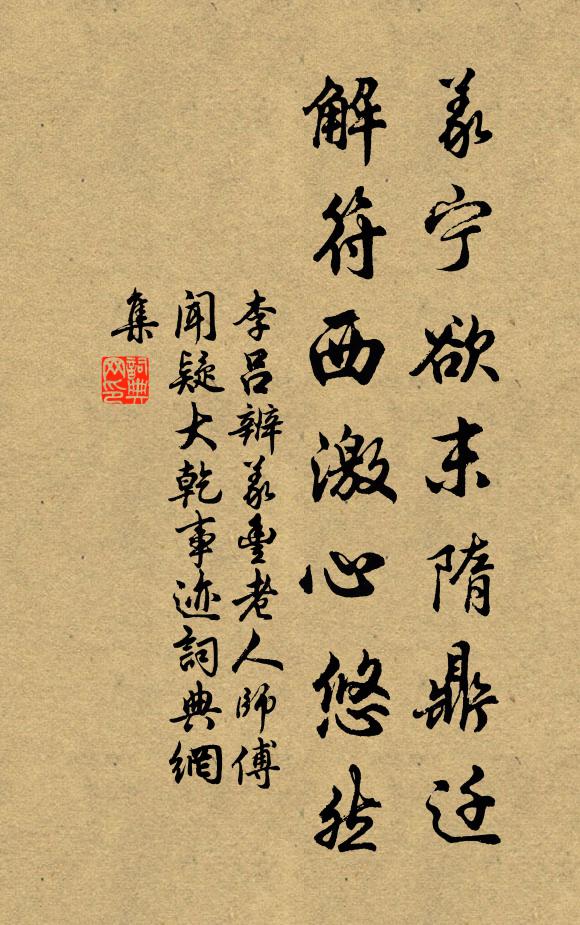 义宁欲末隋鼎迁
解符西激心悠然
李吕辨义丰老人師傅
闻疑大乾事迹詞典網
集
詞典网印